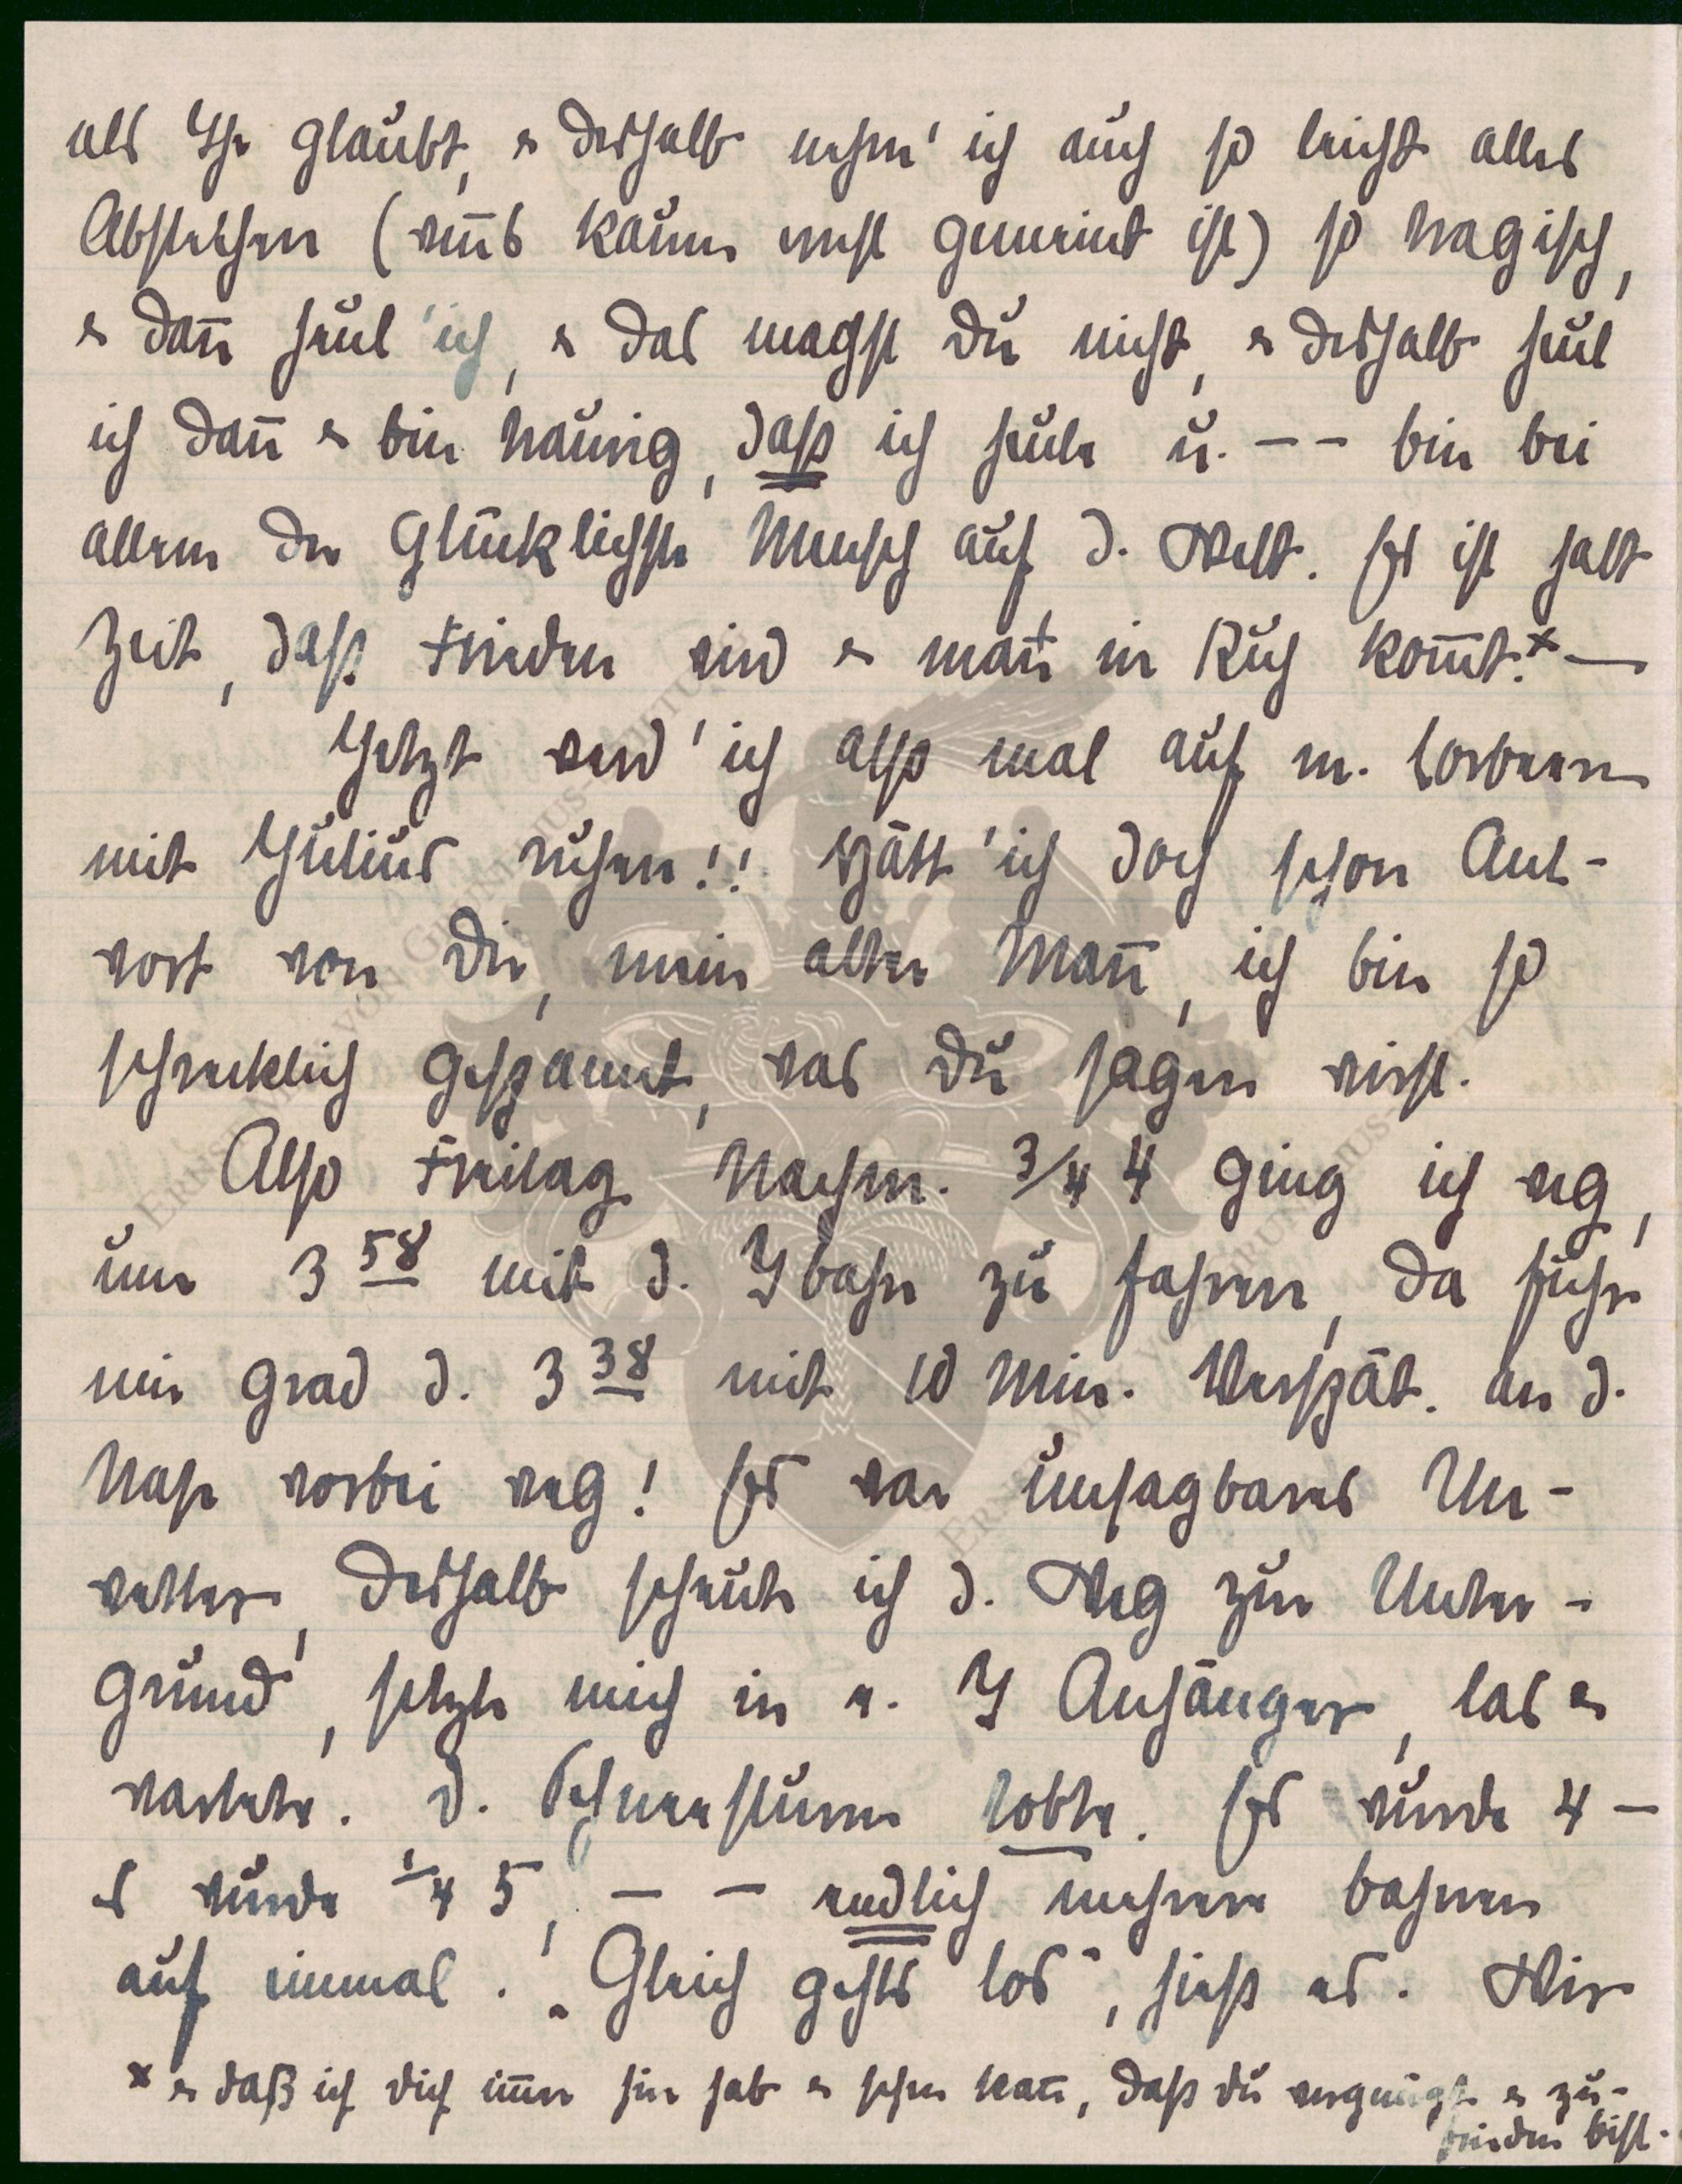 als Ihr glaubt, & deshalb nehm' ich auch so leicht alles
Abstehen (was kaum ernst gemeint ist) so tragisch,
& dañ heul' ich, & das magst Du nicht, & deshalb heul
ich dañ & bin traurig, daß ich heule u. – – bin bei
allem der glücklichste Mensch auf d. Welt. Es ist halt
Zeit, daß Frieden wird & mañ in Ruh kom̄t.x —
Jetzt werd' ich also mal auf m. Lorbeeren
mit Julius ruhen!! Hätt' ich doch schon Ant-
wort von Dir, mein alter Mañ, ich bin so
schrecklich gespannt, was Du sagen wirst.
Also Freitag Nachm. 3/4 4 ging ich weg,
um 3 58 mit d. J bahn zu fahren, da fuhr
mir grad d. 3 38 mit 10 Min. Verspät. an d.
Nase vorbei weg! Es war unsagbares Un-
wetter, deshalb scheute ich d. Weg zur Unter-
grund, setzte mich in e. J Anhänger, las &
wartete. D. Schneesturm tobte. Es wurde 4 –
es wurde 1/4 5, – – endlich mehrere bahnen
auf einmal. "Gleich gehts los", hieß es. Wir
x & daß ich Dich im̄er hier hab & sehen kañ, daß Du vergnügt & zu-
frieden bist.